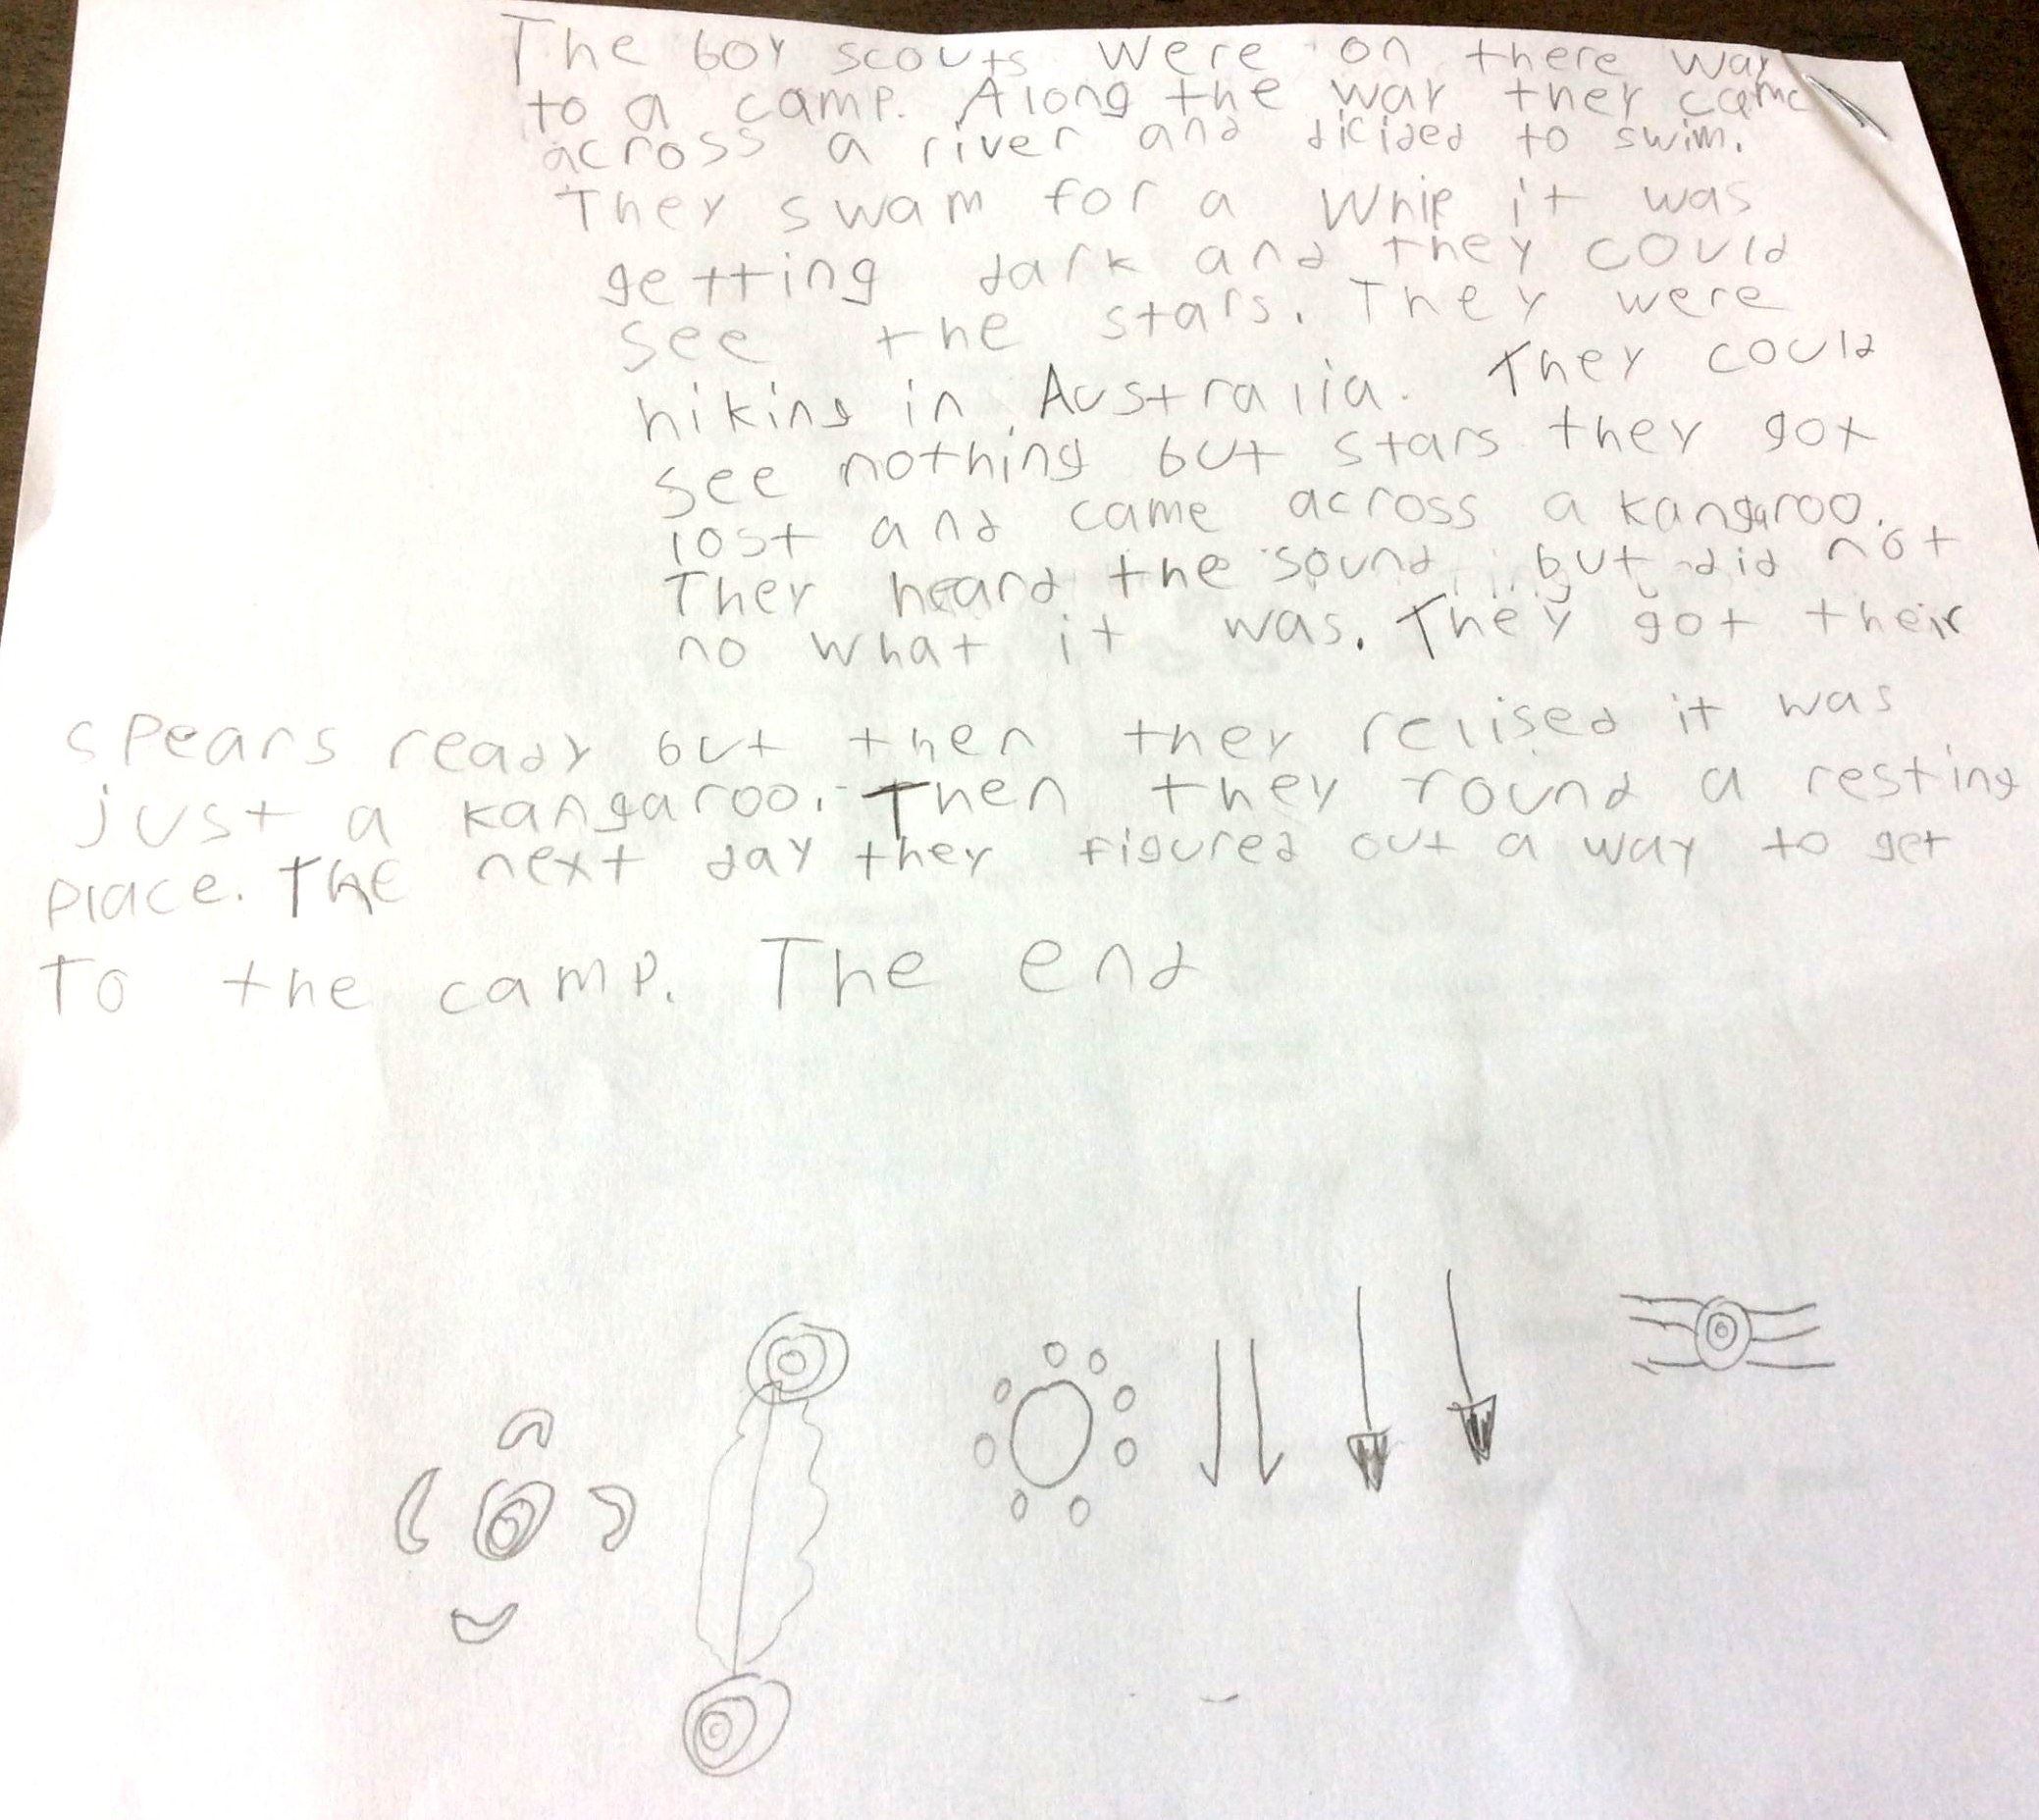 The boy scouts were on there way
to a camp. Along the way they came
across a river and dicided to swim.
They swam for a whie it was
getting dark and they could
see the stars. They were
hiking in Australia. They could
see nothing but stars they got
lost and came across a kangaroo.
They heard the sound but did not
no what it was. They got their
spears ready but then they relised it was
just a kangaroo. Then they found a resting
place. The next day they figured out a way to get
To the camp. The end